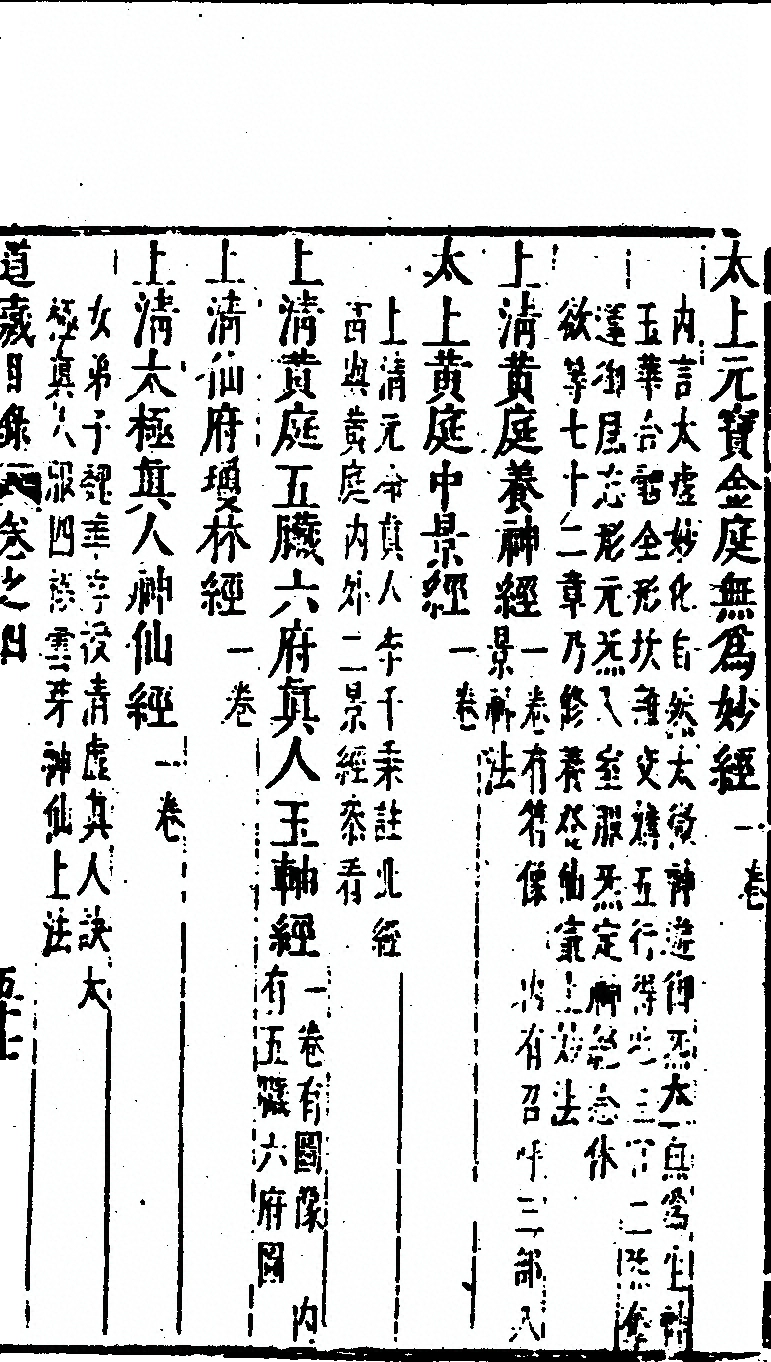 太上元寶金庭無為妙經一卷
内言太虛妙化自然太微神遊御炁太一無為生神
玉華合體全形坎離交媾五行得二炁
運御居志形元炁入室服炁定神絕念休
欲等七十二章乃修養登仙最上妙法
上清黃庭養神經一卷有符像内有召呼三部八
景神法
太上黃庭中景經一卷
上清元命真人李千乘註此經
當與黃庭内外二景經參看
上清黃庭五臟六府真人玉軸經一卷有圖像内
有五臟六府圖
上清仙府瓊林經一卷
上清太極真人神仙經一卷
女弟子魏華存受清虛真人訣太
極真人服四極雲芽神仙上法
道藏目錄卷之四 五十一